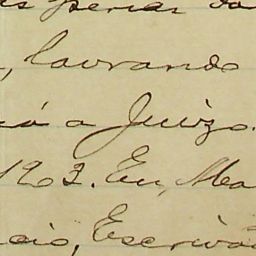 as penas da
, lavrando
rá a Juizo.
1902. Eu, Ma
cio, Escrivão